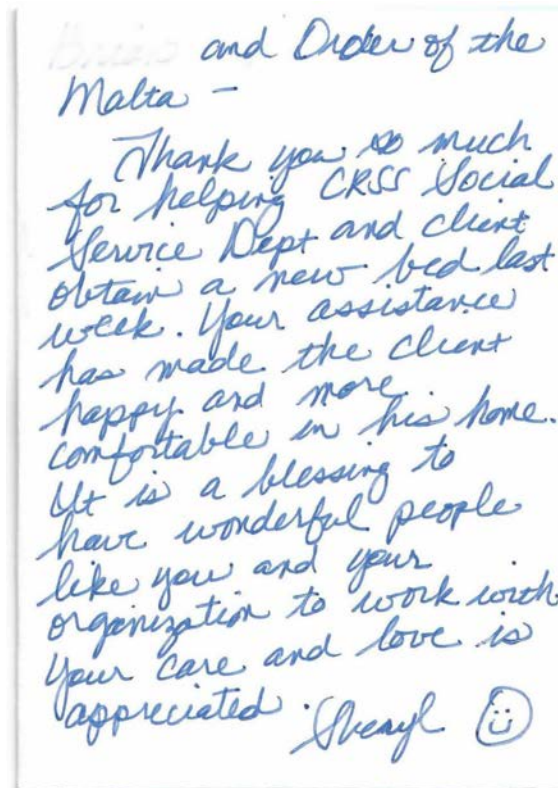 and Order of the
Malta -
Thank you so much
for helping CRSS Social
Service Dept and client
obtain a new bed last
week. Your assistance
has made the client
happy and more
comfortable in his home.
It is a blessing to
have wonderful people
like you and your
organization to work with.
Your care and love is
appreciated.
Sheryl